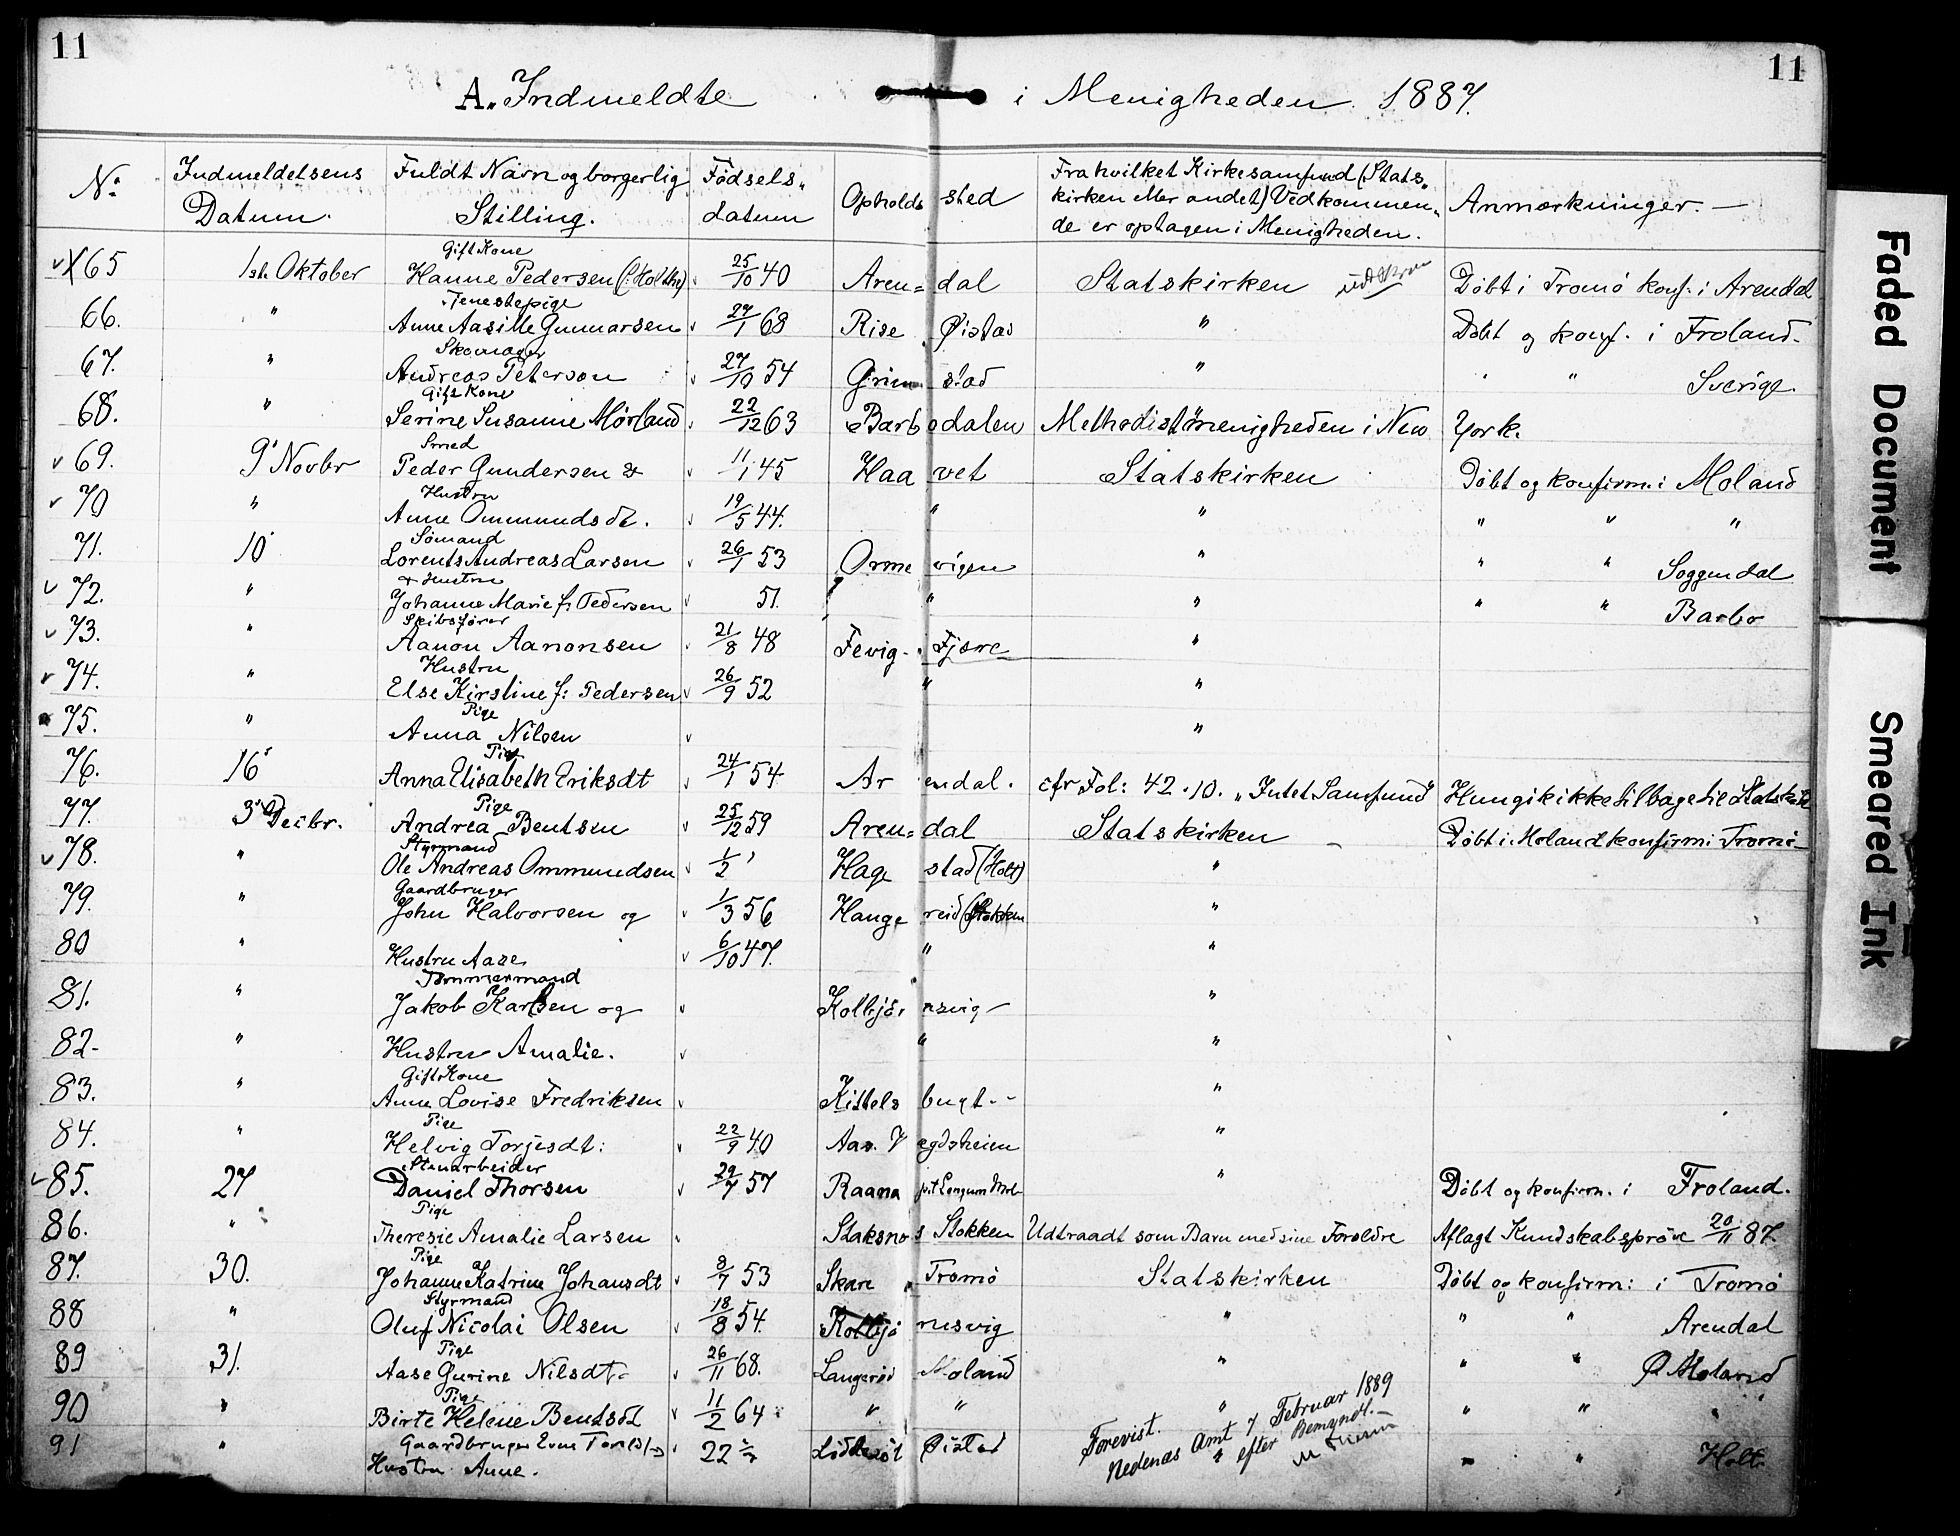 11 11
A. Indmeldte i Menigheden 1887.
No Indmeldelsens Datum. Fuldt Navn og borgerlig Stilling. Fødselsdatum Opholdssted Fra hvilket Kirkesamfund (Statskirken eller andet) Vedkommende er optagen i Menigheden. Anmærkninger. —
Gift Kone
65 1ste Oktober Hanne Pedersen (f: Holthe) 25/10 40 Arendal Statskirken Døbt i Tromø konf. i Arendal
Tjenestepige
66. " Anne Aasille Gunnarsen 27/1 68 Rise Øistad " Døbt og konf. i Froland.
Skomager
67. " Andreas Peterson 27/10 54 Grimstad " " " Sverige.
Gift Kone
68. " Serine Susanne Mørland 22/12 63 Barbodalen Methodistmenigheden i New York.
Smed
69. 9' Novbr Peder Gundersen & 11/1 45 Haavet Statskirken Døbt og konfirm. i Moland
Hustru
70 " Anne Ommundsdt. 19/5 44. " " " " "
Sømand
71. 10' Lorents Andreas Larsen 26/1 53 Ormevigen " " " Soggendal
& Hustru
72. " Johanne Marie f: Pedersen 51. " " " " Barbo
Skibsfører
73. " Aanon Aanonsen 21/8 48 Fevig Fjære "
Hustru
74. " Else Kirstine f: Pedersen 26/9 52 " "
Pige
75. " Anna Nilsen "
Pige
76. 16' Anna Elisabeth Eriksdt 24/1 54 Arendal. cfr Fol: 42.10. „Intet Samfund" Hun gik ikke tilbage til Statskirk
Pige
77. 3' Decbr. Andrea Bentsen 25/12 59 Arendal Statskirken Døbt i Moland konfirm i Tromø
Styrmand
78. " Ole Andreas Ommundsen 1/2 Hagestad (Holt) "
Gaardbruger
79. " John Halvorsen og 1/3 56 Haugereid (Stokken "
80 " Hustru Aase 6/10 47. " "
Tømmermand
81. " Jakob Karlsen og Kolbjørnsvig "
82. " Hustru Amalie. " "
Gift Kone
83. " Anne Lovise Fredriksen Kittelsbugt "
Pige
84. " Helvig Torjesdt: 22/9 40 Aas. Vegdsheien "
Stenarbeider
85. 27 Daniel Thorsen 29/7 57 Raana Longum Mol. " Døbt og konfirm. i Froland.
Pige
86. " Theresie Amalie Larsen Staksnes Stokken Udtraadt som Barn med sine Forældre Aflagt Kundskabsprøve 20/11 87.
Pige
87. 30. Johanne Katrine Johansdt 8/7 53 Skare Tromø Statskirken Døbt og konfirm: i Tromø
Styrmand
88 " Oluf Nicolai Olsen 18/8 54 Kolbjørnsvig " " " Arendal
Pige
89 31. Aase Gurine Nilsdt. 26/11 68. Langerød Moland " " " Ø Moland
Pige
90 " Birte Helene Bentsdt 11/2 64 " " " " " "
Gaardbruger
91 " Hustru Anne. 22 Øistad " " Holt.
Forevist.
Nedenæs Amt 7 Februar 1889
efter Bemyndt.
Faded Document
Smeared Ink